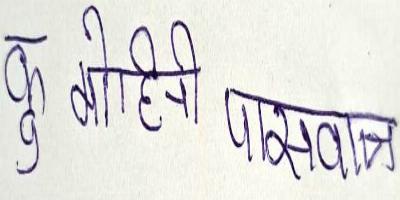 कु मोहिनी पासवान